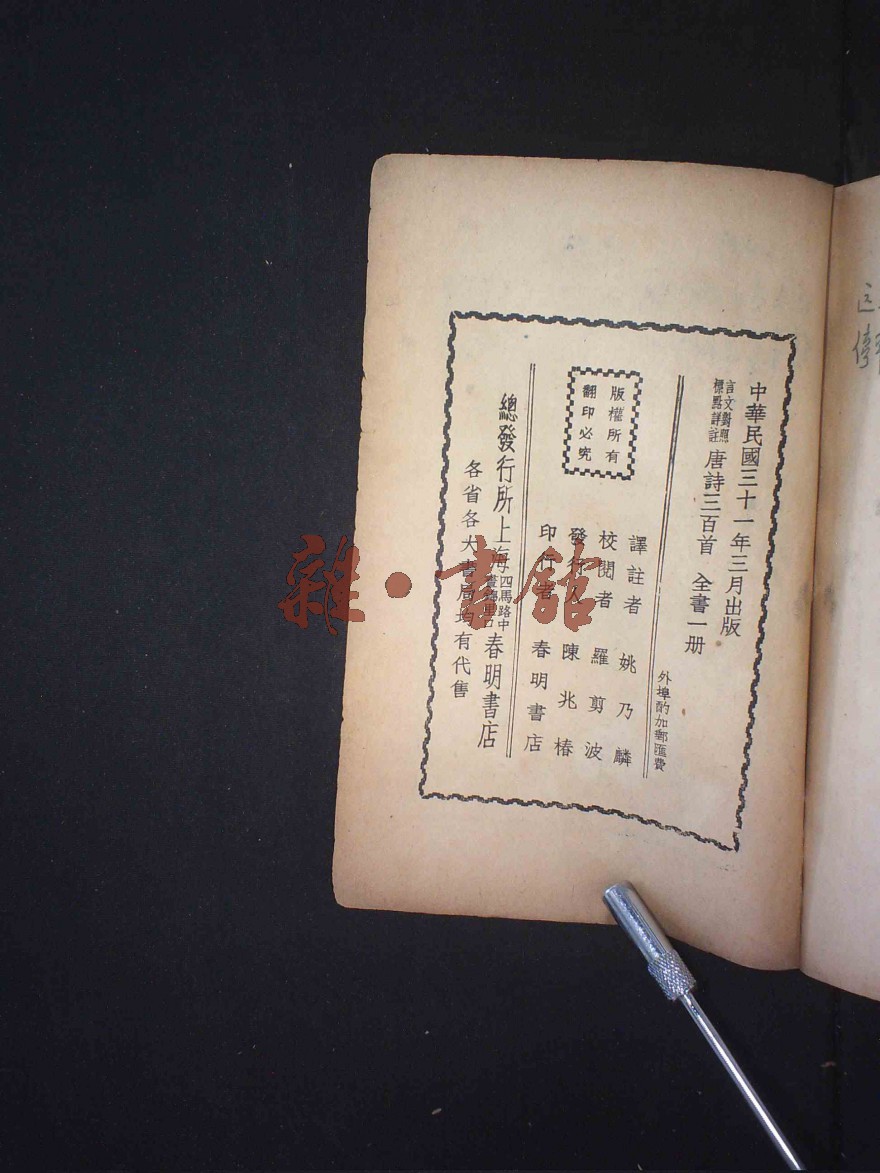 中華民國三十一年三月出版
言文對照
標點詳註
唐詩三百首 全書一册
外埠酌加郵匯費
版權所有
翻印必究
譯註者 姚乃麟
校閱者 羅剪波
發行人 陳兆椿
印行者 春明書店
總發行所 上海 四馬路中
春明書店
各省各大書局均有代售
雜·書館